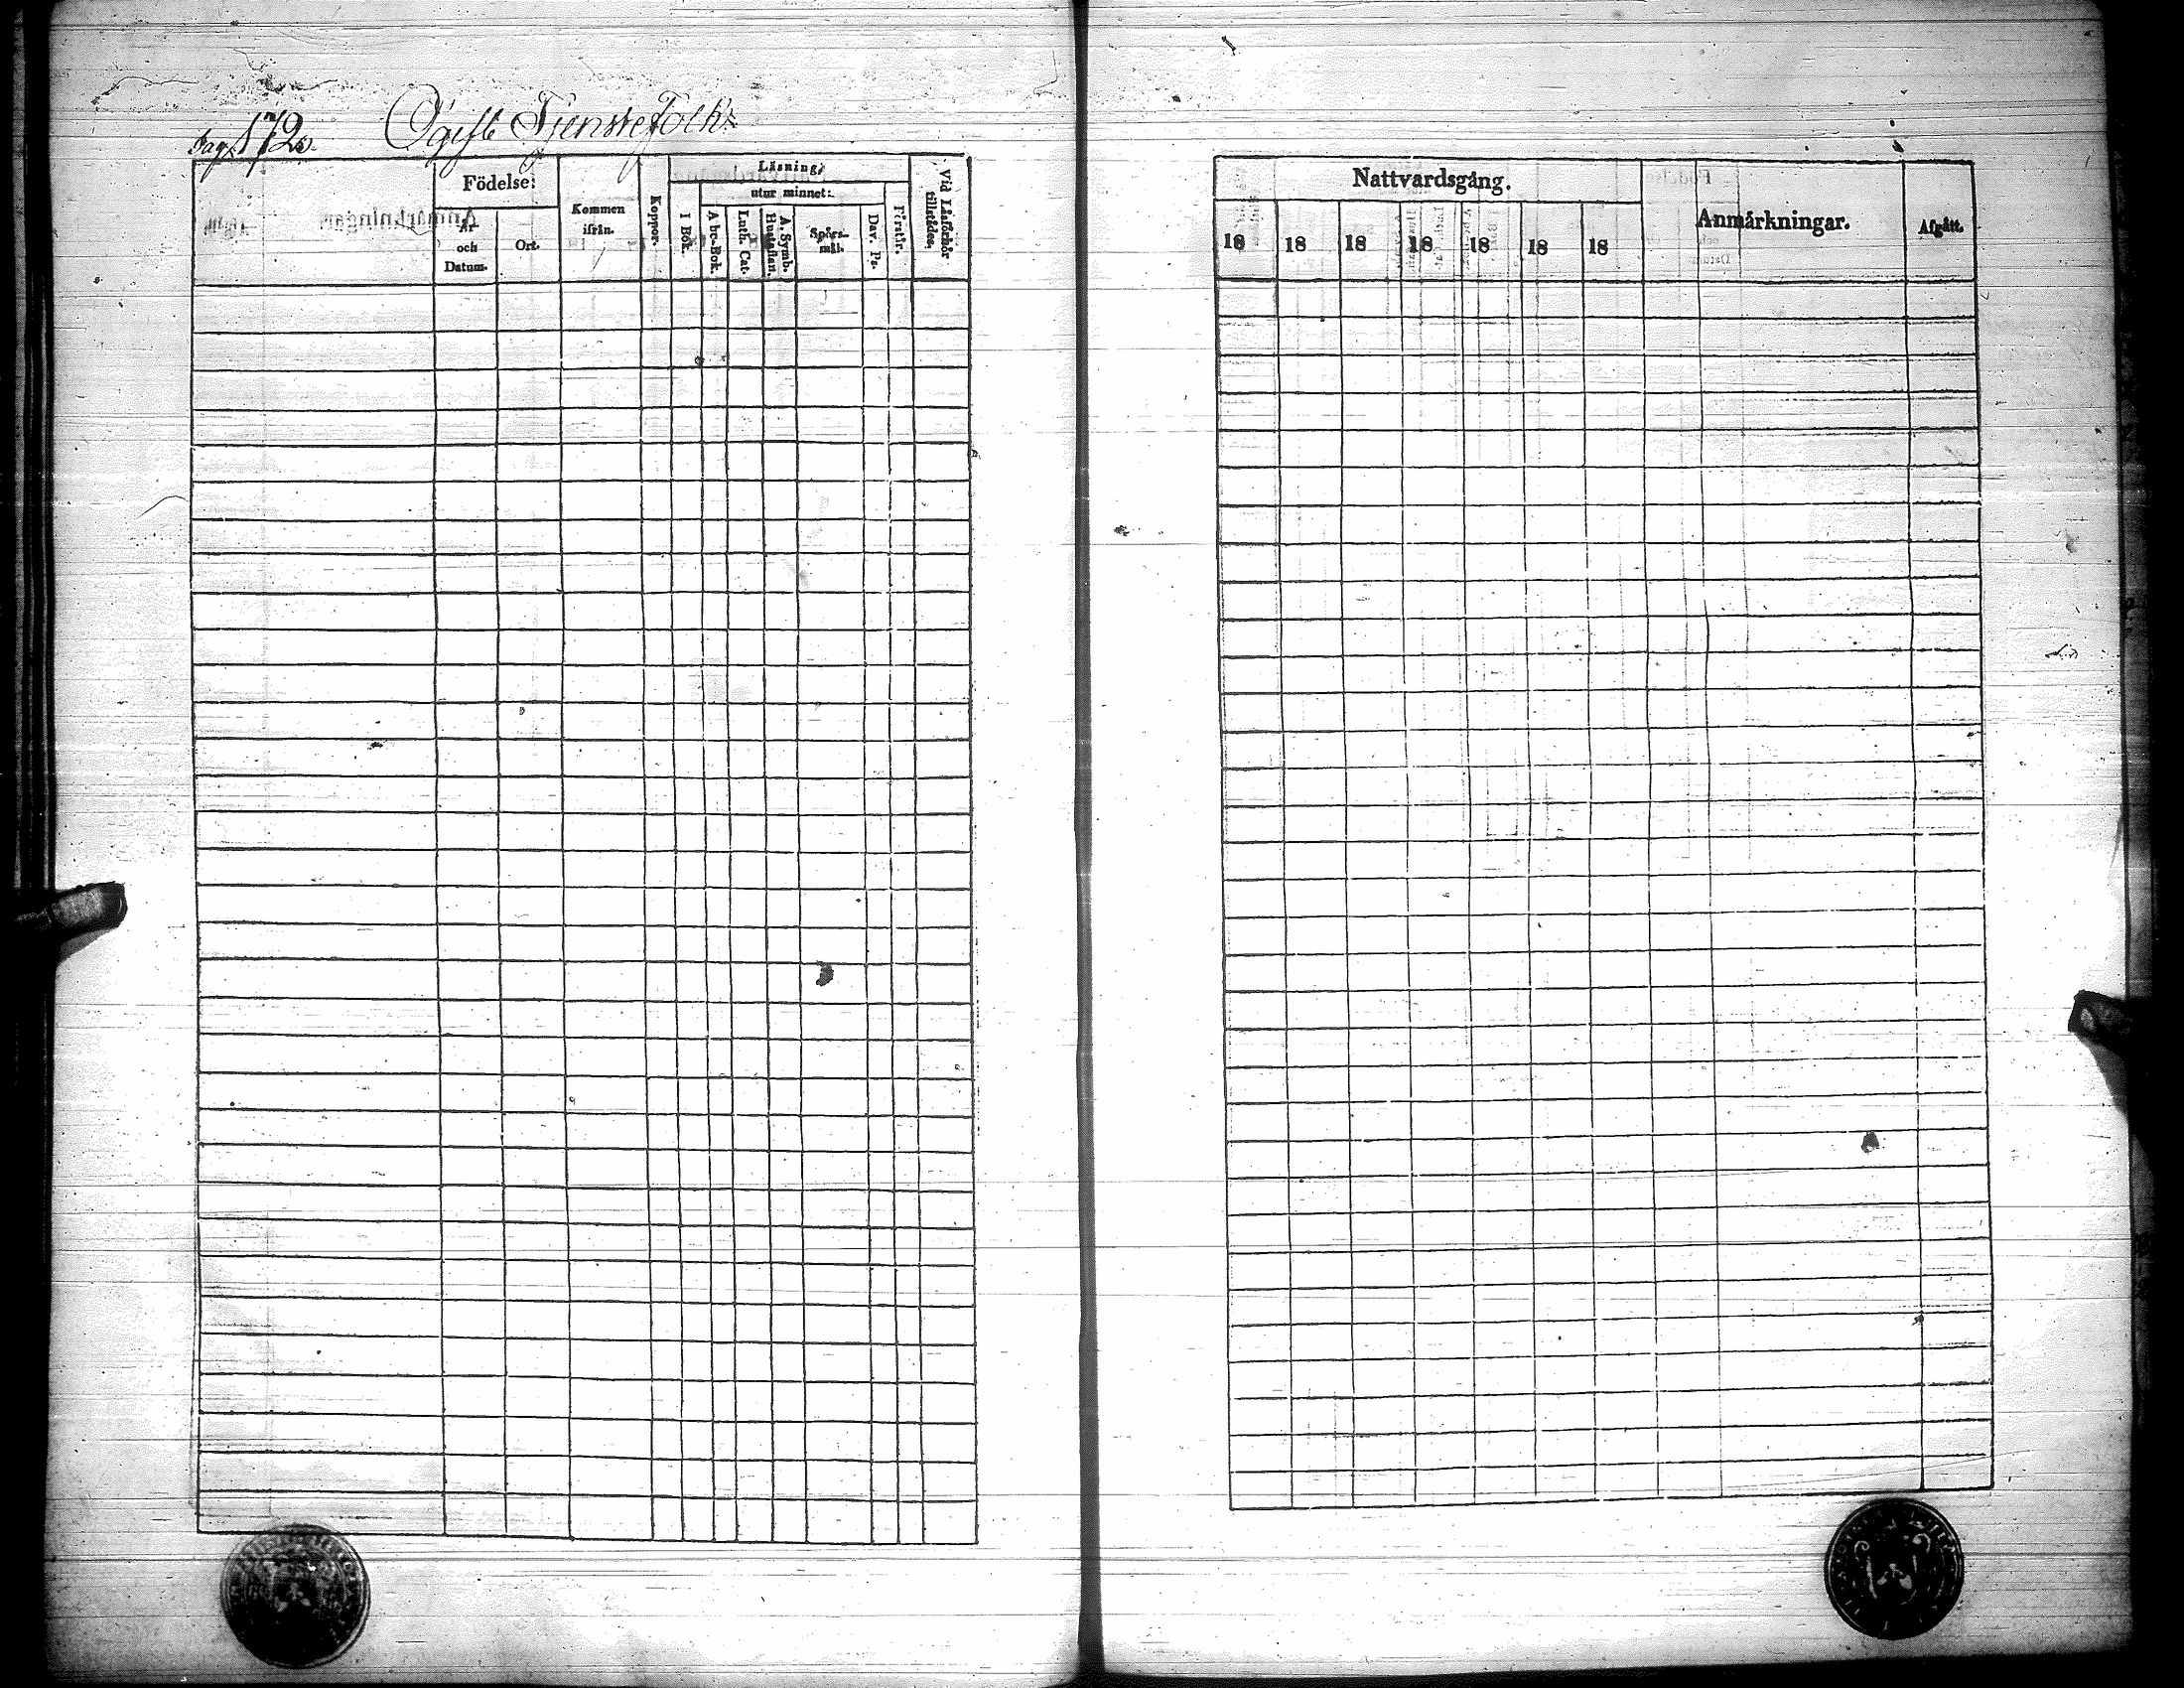 Pag. 172.
Ogifte Tjenstefolk
Födelse:
År
och
Datum.
Ort.
Kommen
ifrån.
Koppor.
Läsning,
utur minnet:
I Bok.
Abc-Bok.
Luth. Cat.
A. Symb.
Hustaflan.
Spörs-
mål.
Dav. Ps.
Förstår.
Vid Läsförhör
tillstädes.
Nattvardsgång.
18 18 18 18 18 18 18
Anmärkningar.
Afgått.